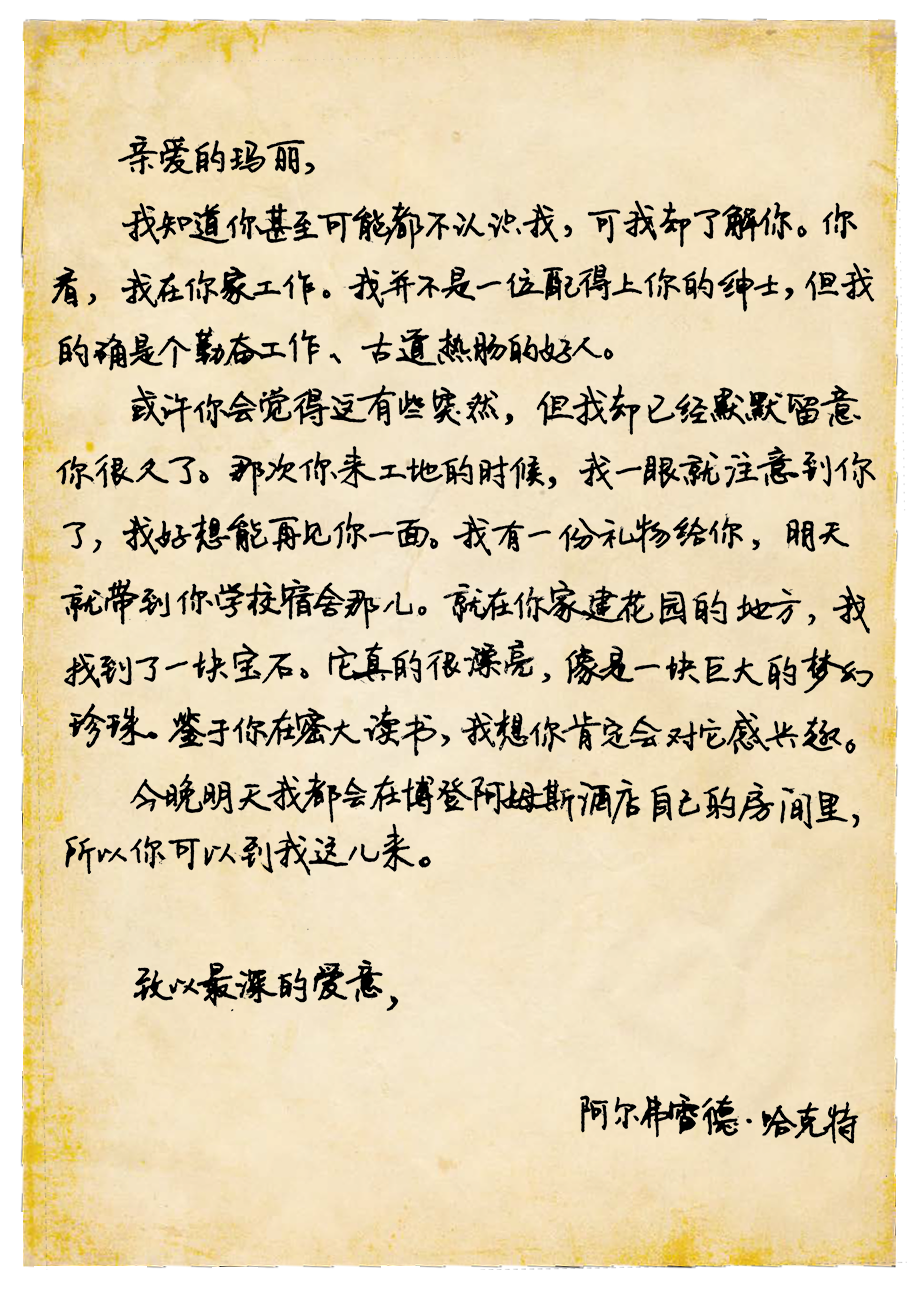 亲爱的玛丽,
我知道你甚至可能都不认识我，可我却了解你。你
看，我在你家工作。我并不是一位配得上你的绅士，但我
的确是个勤奋工作、古道热肠的好人。
或许你会觉得这有些突然，但我却已经默默留意
你很久了。那次你来工地的时候，我一眼就注意到你
了，我好想能再见你一面。我有一份礼物给你，明天
就带到你学校宿舍那儿。就在你家建花园的地方，我
找到了一块宝石。它真的很漂亮，像是一块巨大的梦幻
珍珠。鉴于你在密大读书，我想你肯定会对它感兴趣。
今晚明天我都会在博登阿姆斯酒店自己的房间里，
所以你可以到我这儿来。
致以最深的爱意，
阿尔弗雷德·哈克特